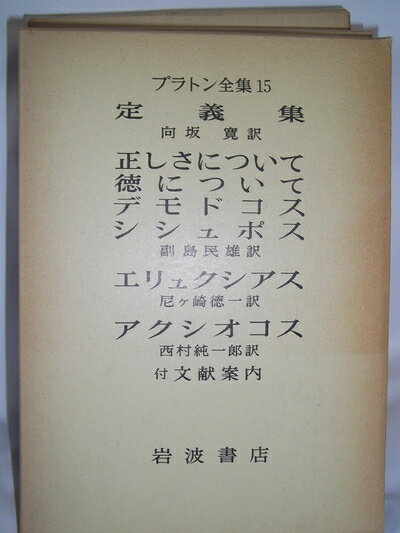 プラトン全集15
定義集
向坂寛訳
正しさについて
徳について
デモドコス
シシュポス
副島民雄訳
エリュクシアス
尼ヶ崎徳一訳
アクシオコス
西村純一郎訳
付文献案内
岩波書店